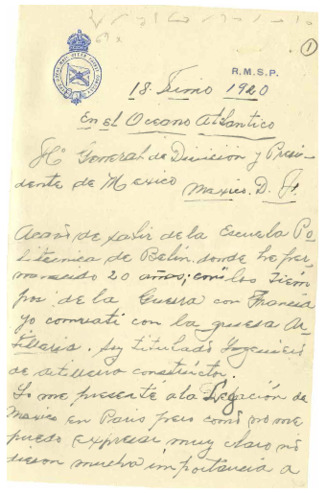 1
R.M.S.P.
18. Junio 1920
En el Oceano Atlantico
General de División y Presi-
dente de Mexico
Mexico. D. F.
Acavo de salir de la Escuela Po-
litecnica de Belin. donde he per-
manecido 20 años; con los tiem-
pos de la Guerra con Francia
yo comvati con la gruesa Ar-
tilleria. Soy titulado Yngeniero
de artillero constructor.
Yo me presenté a la Legación de
Mexico en Paris pero como no me
puedo expresar muy claro no
dieron mucha importancia a